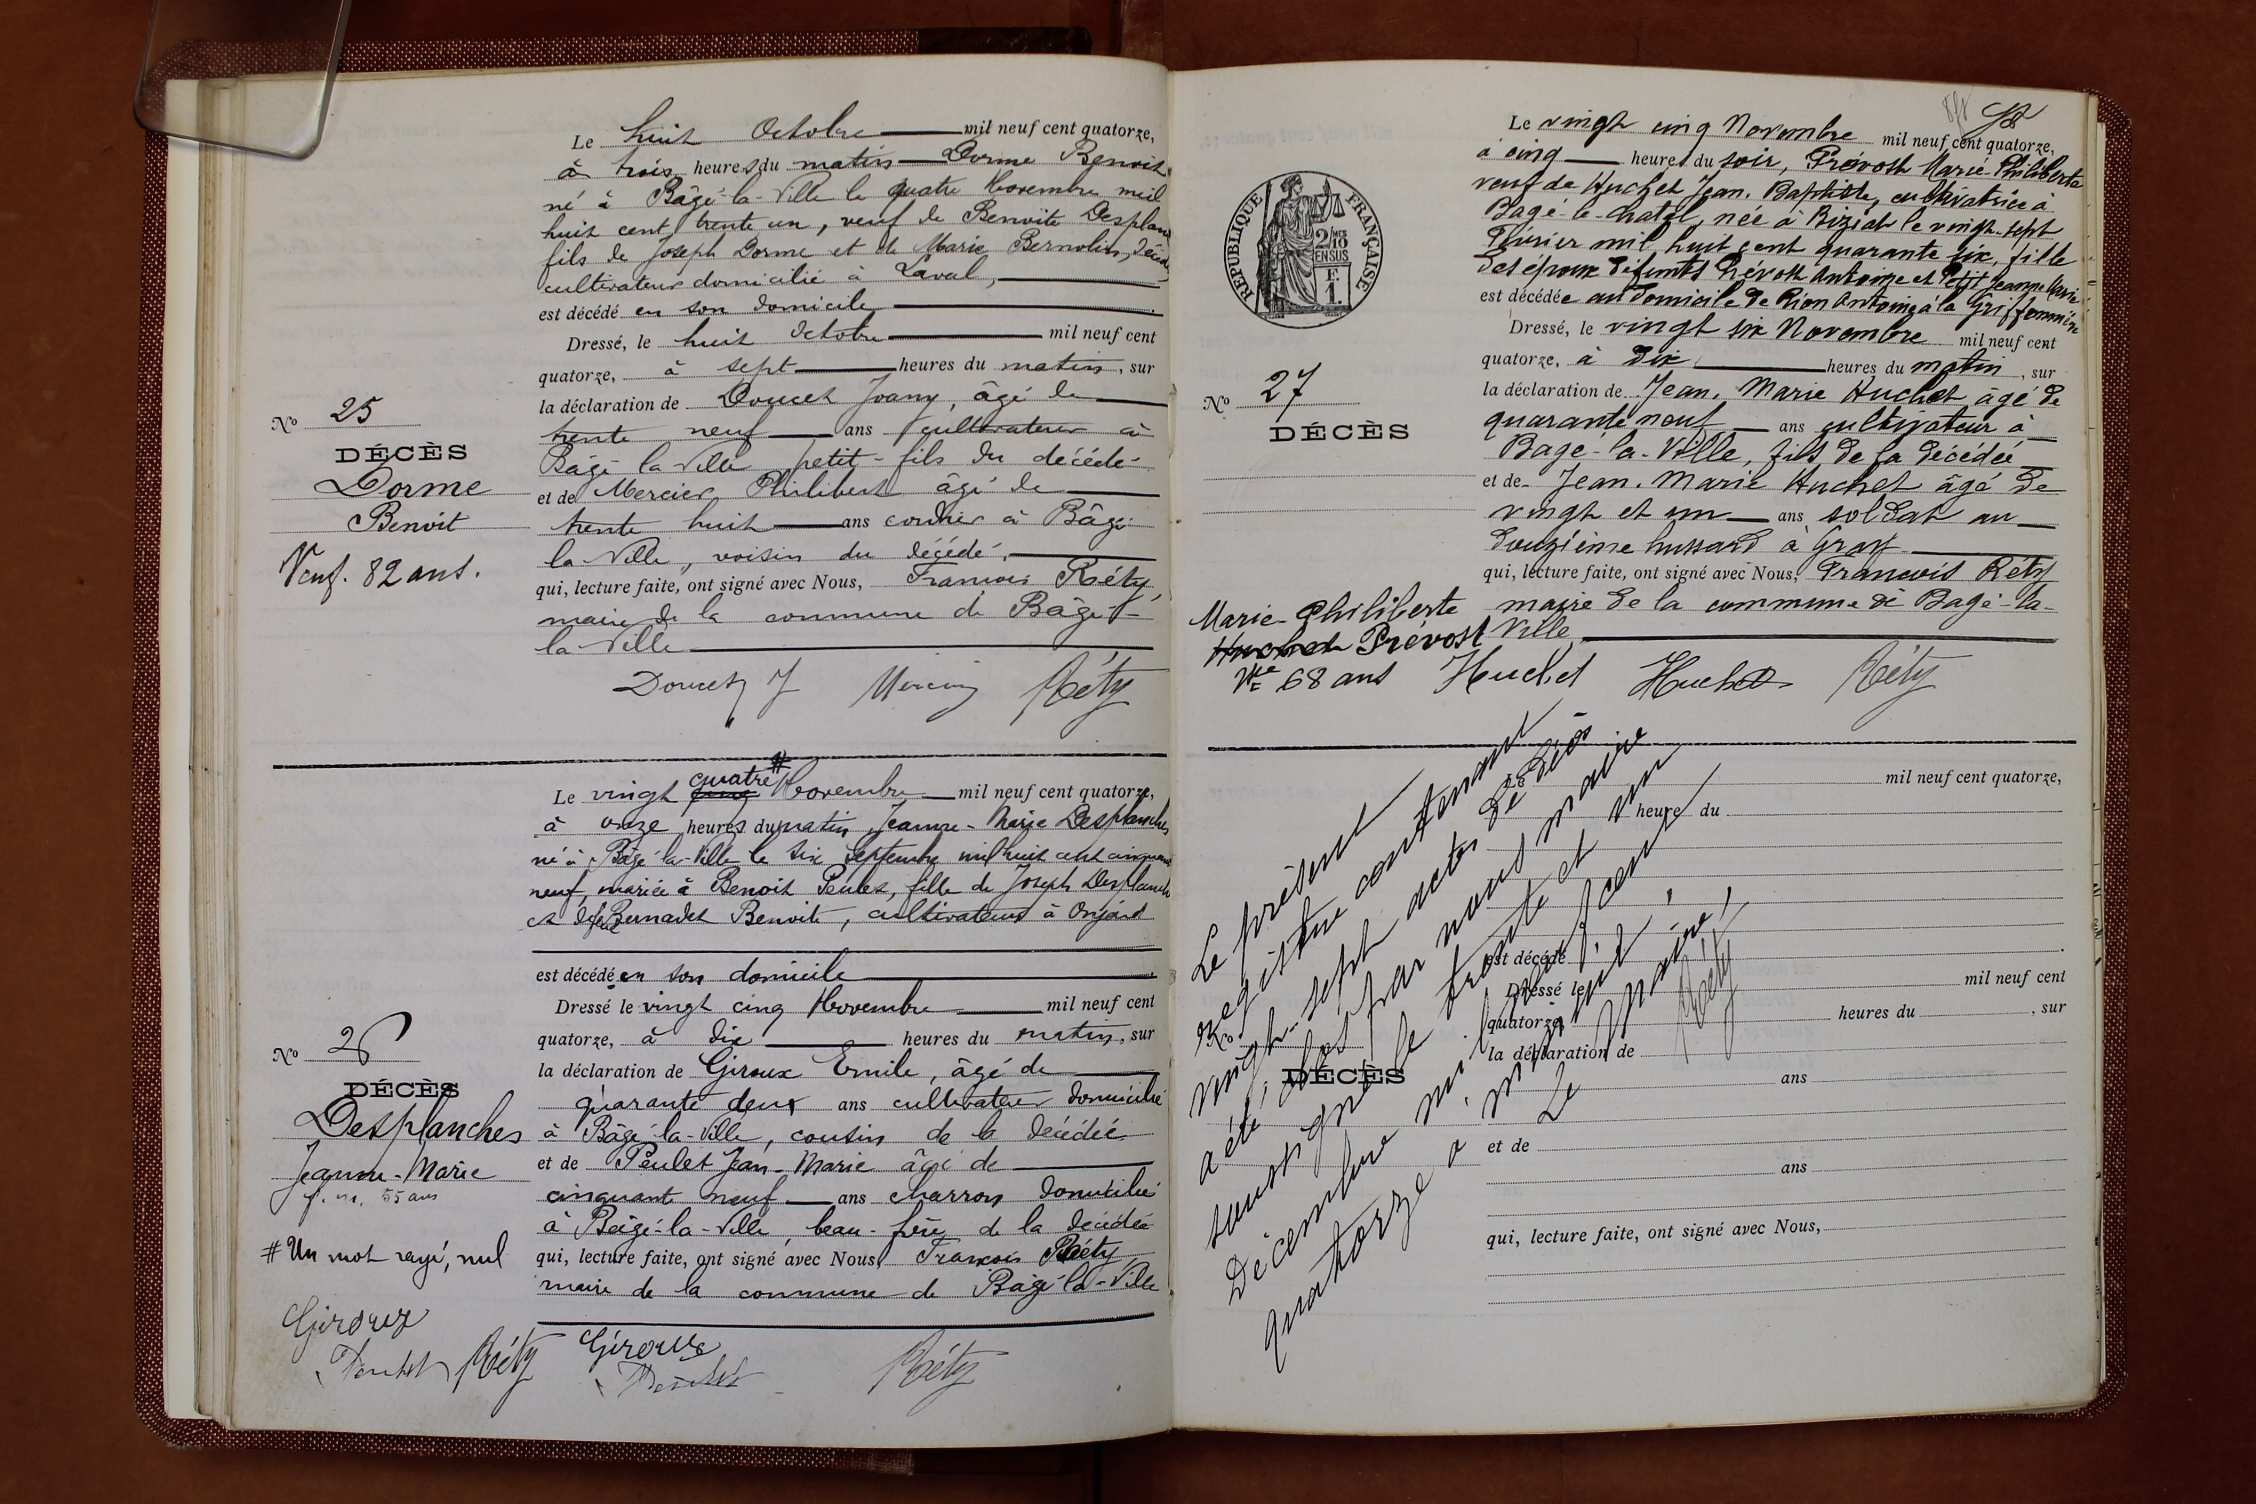 Le huit Octobre mil neuf cent quatorze,
à trois heures du matin Dorme Benoit
né à Bâgé-la-Ville le quatre Novembre mil
huit cent trente un, veuf de Benoite Desplan
fils de Joseph Dorme et de Marie Bernolin, décéd
cultivateur domicilié à Laval,
est décédé en son domicile
Dressé, le huit Octobre mil neuf cent
quatorze, à sept heures du matin, sur
la déclaration de Doucet Joany, âgé de
trente neuf ans cultivateur à
Bâgé la Ville petit-fils du décédé
et de Mercier Philibert âgé de
trente huit ans à Bâgé
la-Ville, voisin du décédé,
qui, lecture faite, ont signé avec Nous, François Réty,
maire de la commune de Bâgé-
la-Ville
No 25
DÉCÈS
Dorme
Benoit
Veuf. 82 ans.
Doucet J Mercier Réty
Le vingt cinq quatre # Novembre mil neuf cent quatorze,
à onze heures du matin, Jeanne-Marie Desplanches
né à Bâgé-la-Ville le six Septembre mil huit cent cinquante
neuf, mariée à Benoit Peulet, fille de Joseph Desplanche
et de feue Bernadet Benoite, cultivateurs à Onjard
est décédée en son domicile
Dressé le vingt cinq Novembre mil neuf cent
quatorze, à dix heures du matin, sur
la déclaration de Giroux Emile, âgé de
quarante deux ans cultivateur domicilié
à Bâgé-la-Ville, cousin de la décédée
et de Peulet Jean-Marie âgé de
cinquante neuf ans charron domicilié
à Bâgé-la-Ville, beau-frère de la décédée
qui, lecture faite, ont signé avec Nous, François Réty
maire de la commune de Bâgé-la-Ville
No 26
DÉCÈS
Desplanches
Jeanne-Marie
f. m. 55 ans
# Un mot rayé, nul
Giroux
Peulet Réty
Giroux
Peulet Réty
RÉPUBLIQUE FRANÇAISE
2/10
EN SUS
F.
1.
Le vingt cinq Novembre mil neuf cent quatorze,
à cinq heures du soir, Prévost Marie Philiberte
veuf de Huchet Jean. Baptiste, cultivatrice à
Bagé-le-Chatel, née à Biziat le vingt-sept
Février mil huit cent quarante six, fille
des époux défunts Prévost Antoine et Petit Jeanne Marie
est décédée au domicile de Rion Antoine à la Griffonnière
Dressé, le vingt six Novembre mil neuf cent
quatorze, à dix heures du matin, sur
la déclaration de Jean. Marie Huchet âgé de
quarante neuf ans cultivateur à
Bagé-la-Ville, fils de la décédée
et de Jean. Marie Huchet âgé de
vingt et un ans soldat au
douzième hussard à Gray
qui, lecture faite, ont signé avec Nous, François Réty
maire de la commune de Bagé-la-
Ville
No 27
DÉCÈS
Marie-Philiberte
Huchet Prévost
Vve 68 ans
Huchet Huchet Réty
Le présent
registre contenant
vingt-sept actes de décès
a été clos par nous maire
soussigné le trente et un
Décembre mil neuf cent
quatorze à minuit,
Le Maire,
Réty
mil neuf cent quatorze,
heure du
est décédé
Dressé le mil neuf cent
quatorze, heures du , sur
la déclaration de
ans
et de
ans
qui, lecture faite, ont signé avec Nous,
No
DÉCÈS